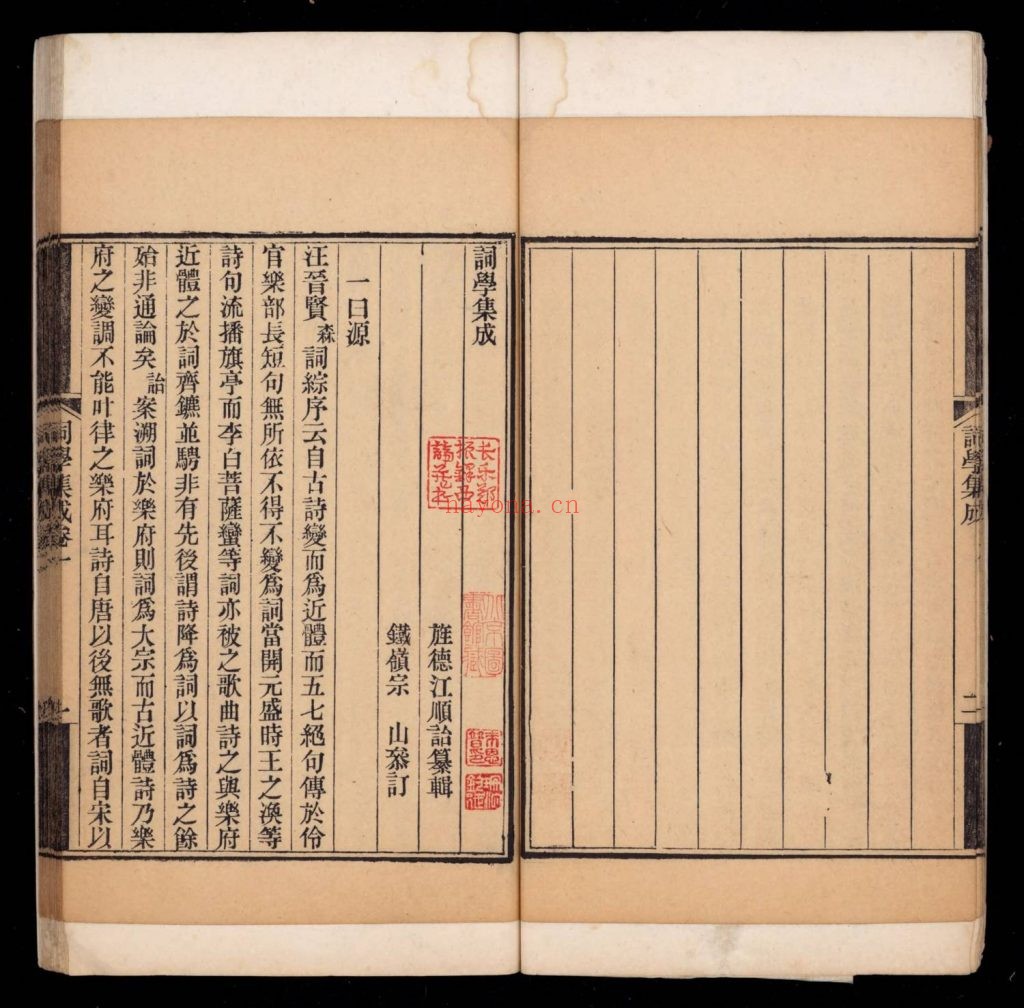 詞學集成
二
詞學集成
旌德江順詒纂輯
鐵嶺宗　山叅訂
一曰源
汪晉賢森詞綜序云自古詩變而爲近體而五七絕句傳於伶
官樂部長短句無所依不得不變爲詞當開元盛時王之渙等
詩句流播旗亭而李白菩薩蠻等詞亦被之歌曲詩之與樂府
近體之於詞齊鑣並騁非有先後謂詩降爲詞以詞爲詩之餘
殆非通論矣詒案溯詞於樂府則詞爲大宗而古近體詩乃樂
府之變調不能叶律之樂府耳詩自唐以後無歌者詞自宋以
詞學集成卷一
一
長樂鄭
振鐸西
諦藏書
北京圖
書館藏
nayona.cn